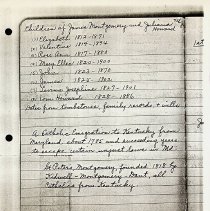 Children of James Montgomery and Julianna Howard
(1) Elizabeth 1812-1871
(2) Valentine 1814-1894
(3) Rose Ann 1817-1880
(4) Mary Ellen 1820-1900
(5) John 1823-1870
(6) James 1825-1902
(7) Susann Josephine 1827-1901
(8) Tom Howard 1828-1886
Dates from tombstones, family records + wills
A Catholic Emigration to Kentucky from
Maryland about 1785 and succeeding years
to escape certain unjust laws in Md
St Peters, Montgomery, founded 1818 by
Tidwell - Montgomery - Grant, all
Catholics from Kentucky.